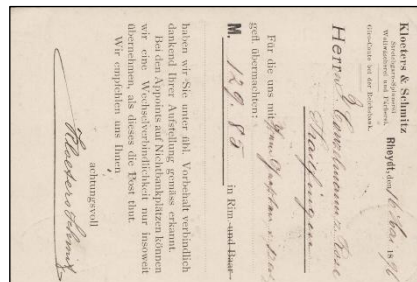 Kloeters & Schmitz
Streichgarn-Spinnerei
Wollwäscherei und Färberei.
Giro-Conto bei der Reichsbank.
Rheydt, den 16 Mai 1896
Herrn
Thailfingen
Für die uns mit
gefl. übermachten:
M. 129.85 in Rim. und Baar
haben wir Sie unter übl. Vorbehalt verbindlich
dankend Ihrer Aufstellung gemäss erkannt.
Bei den Appoints auf Nichtbankplätzen können
wir eine Wechselverbindlichkeit nur insoweit
übernehmen, als dieses die Post thut.
Wir empfehlen uns Ihnen
achtungsvoll
Kloeters Schmitz